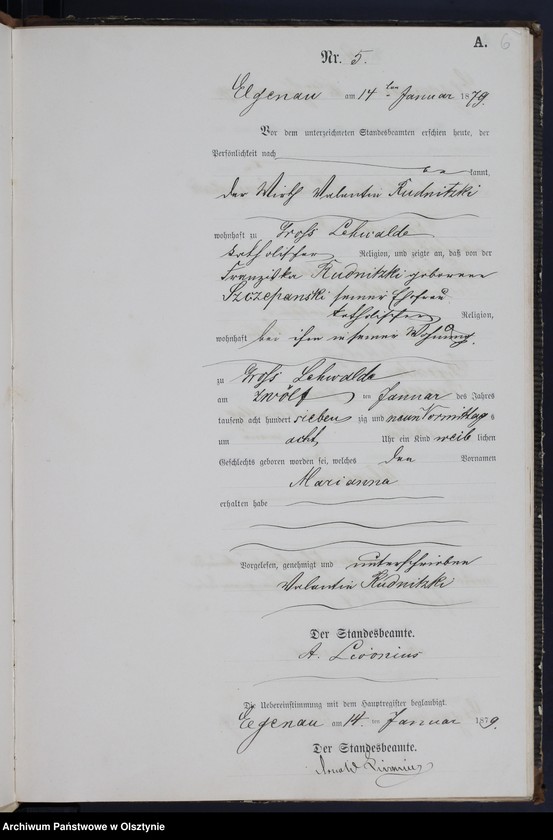 A. 6
Nr. 5.
Elgenau am 14ten Januar 1879.
Vor dem unterzeichneten Standesbeamten erschien heute, der
Persönlichkeit nach
be kannt,
der Wirth Valentin Rudnitzki
wohnhaft zu Gross Lehwalde
katholischer Religion, und zeigte an, daß von der
Franziska Rudnitzki geborene
Szczepanski seiner Ehefrau
katholischer Religion,
wohnhaft bei ihm in seiner Wohnung,
zu Gross Lehwalde
am zwölf ten Januar des Jahres
tausend acht hundert sieben zig und neun Vormittag s
um acht Uhr ein Kind weib lichen
Geschlechts geboren worden sei, welches den Vornamen
Marianna
erhalten habe
Vorgelesen, genehmigt und unterschrieben
Valentin Rudnitzki
Der Standesbeamte.
A. Livonius
Die Uebereinstimmung mit dem Hauptregister beglaubigt.
Elgenau am 14. ten Januar 1879.
Der Standesbeamte.
Arnold Livonius
Archiwum Państwowe w Olsztynie